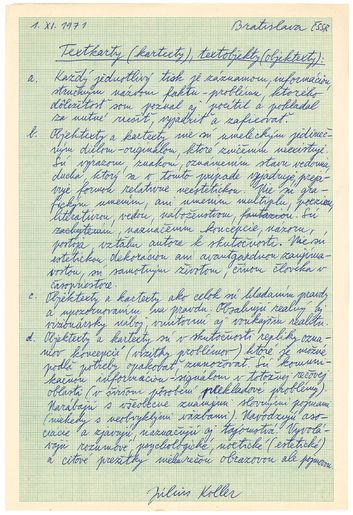 1. XI. 1971 Bratislava ČSSR
Textkarty (kartexty), textobjekty (objektexty):
a. Každý jednotlivý tisk je záznamom, informáciou,
stručným názvom faktu-problému, ktorého
dôležitosť som poznal aj pocítil a pokladal
za nutné riešiť, vyjadriť a zafixovať.
b. Objektexty a kartexty nie sú umeleckým jedineč-
ným dielom-originálom, ktoré zničením neexistuje.
Sú výrazom, znakom, oznámením stavu vedomia,
ducha, ktorý sa v tomto prípade vyjadruje, preja-
vuje formou relatívne neestetickou. Nie sú gra-
fickým umením, ani umením multiplu, poéziou,
literatúrou, vedou, náboženstvom, fantáziou. Sú
zachytením, naznačením koncepcie, názoru,
postoja, vzťahu autora k skutočnosti. Nie sú
estetickou dekoráciou ani avantgardnou zaujíma-
vosťou, sú samotným životom, činom človeka v
časopriestore.
c. Objektexty a kartexty ako celok sú hľadaním pravdy
a upozorňovaním na pravdu. Obsahujú reálny aj
vizionársky náboj, vnútornú aj vonkajšiu realitu.
d. Objektexty a kartexty sú v skutočnosti repliky ozna-
mov koncepcie (všetky problémov), ktoré je možné
podľa potreby opakovať, rozmnožovať. Sú komuni-
kačnou informáciou-signálom v totožnej rečovej
oblasti (v širšom pôsobení prekladové problémy).
Narábajú s všeobecne známymi slovnými pojmami
(niekedy s neobvyklými väzbami). Navodzujú aso-
ciácie a zjavujú, naznačujú aj tajomstvá. Vyvolá-
vajú rozumové, psychologické, noetické (estetické)
a citové prežitky nielen rečou obrazovou ale pojmovou.
Július Koller